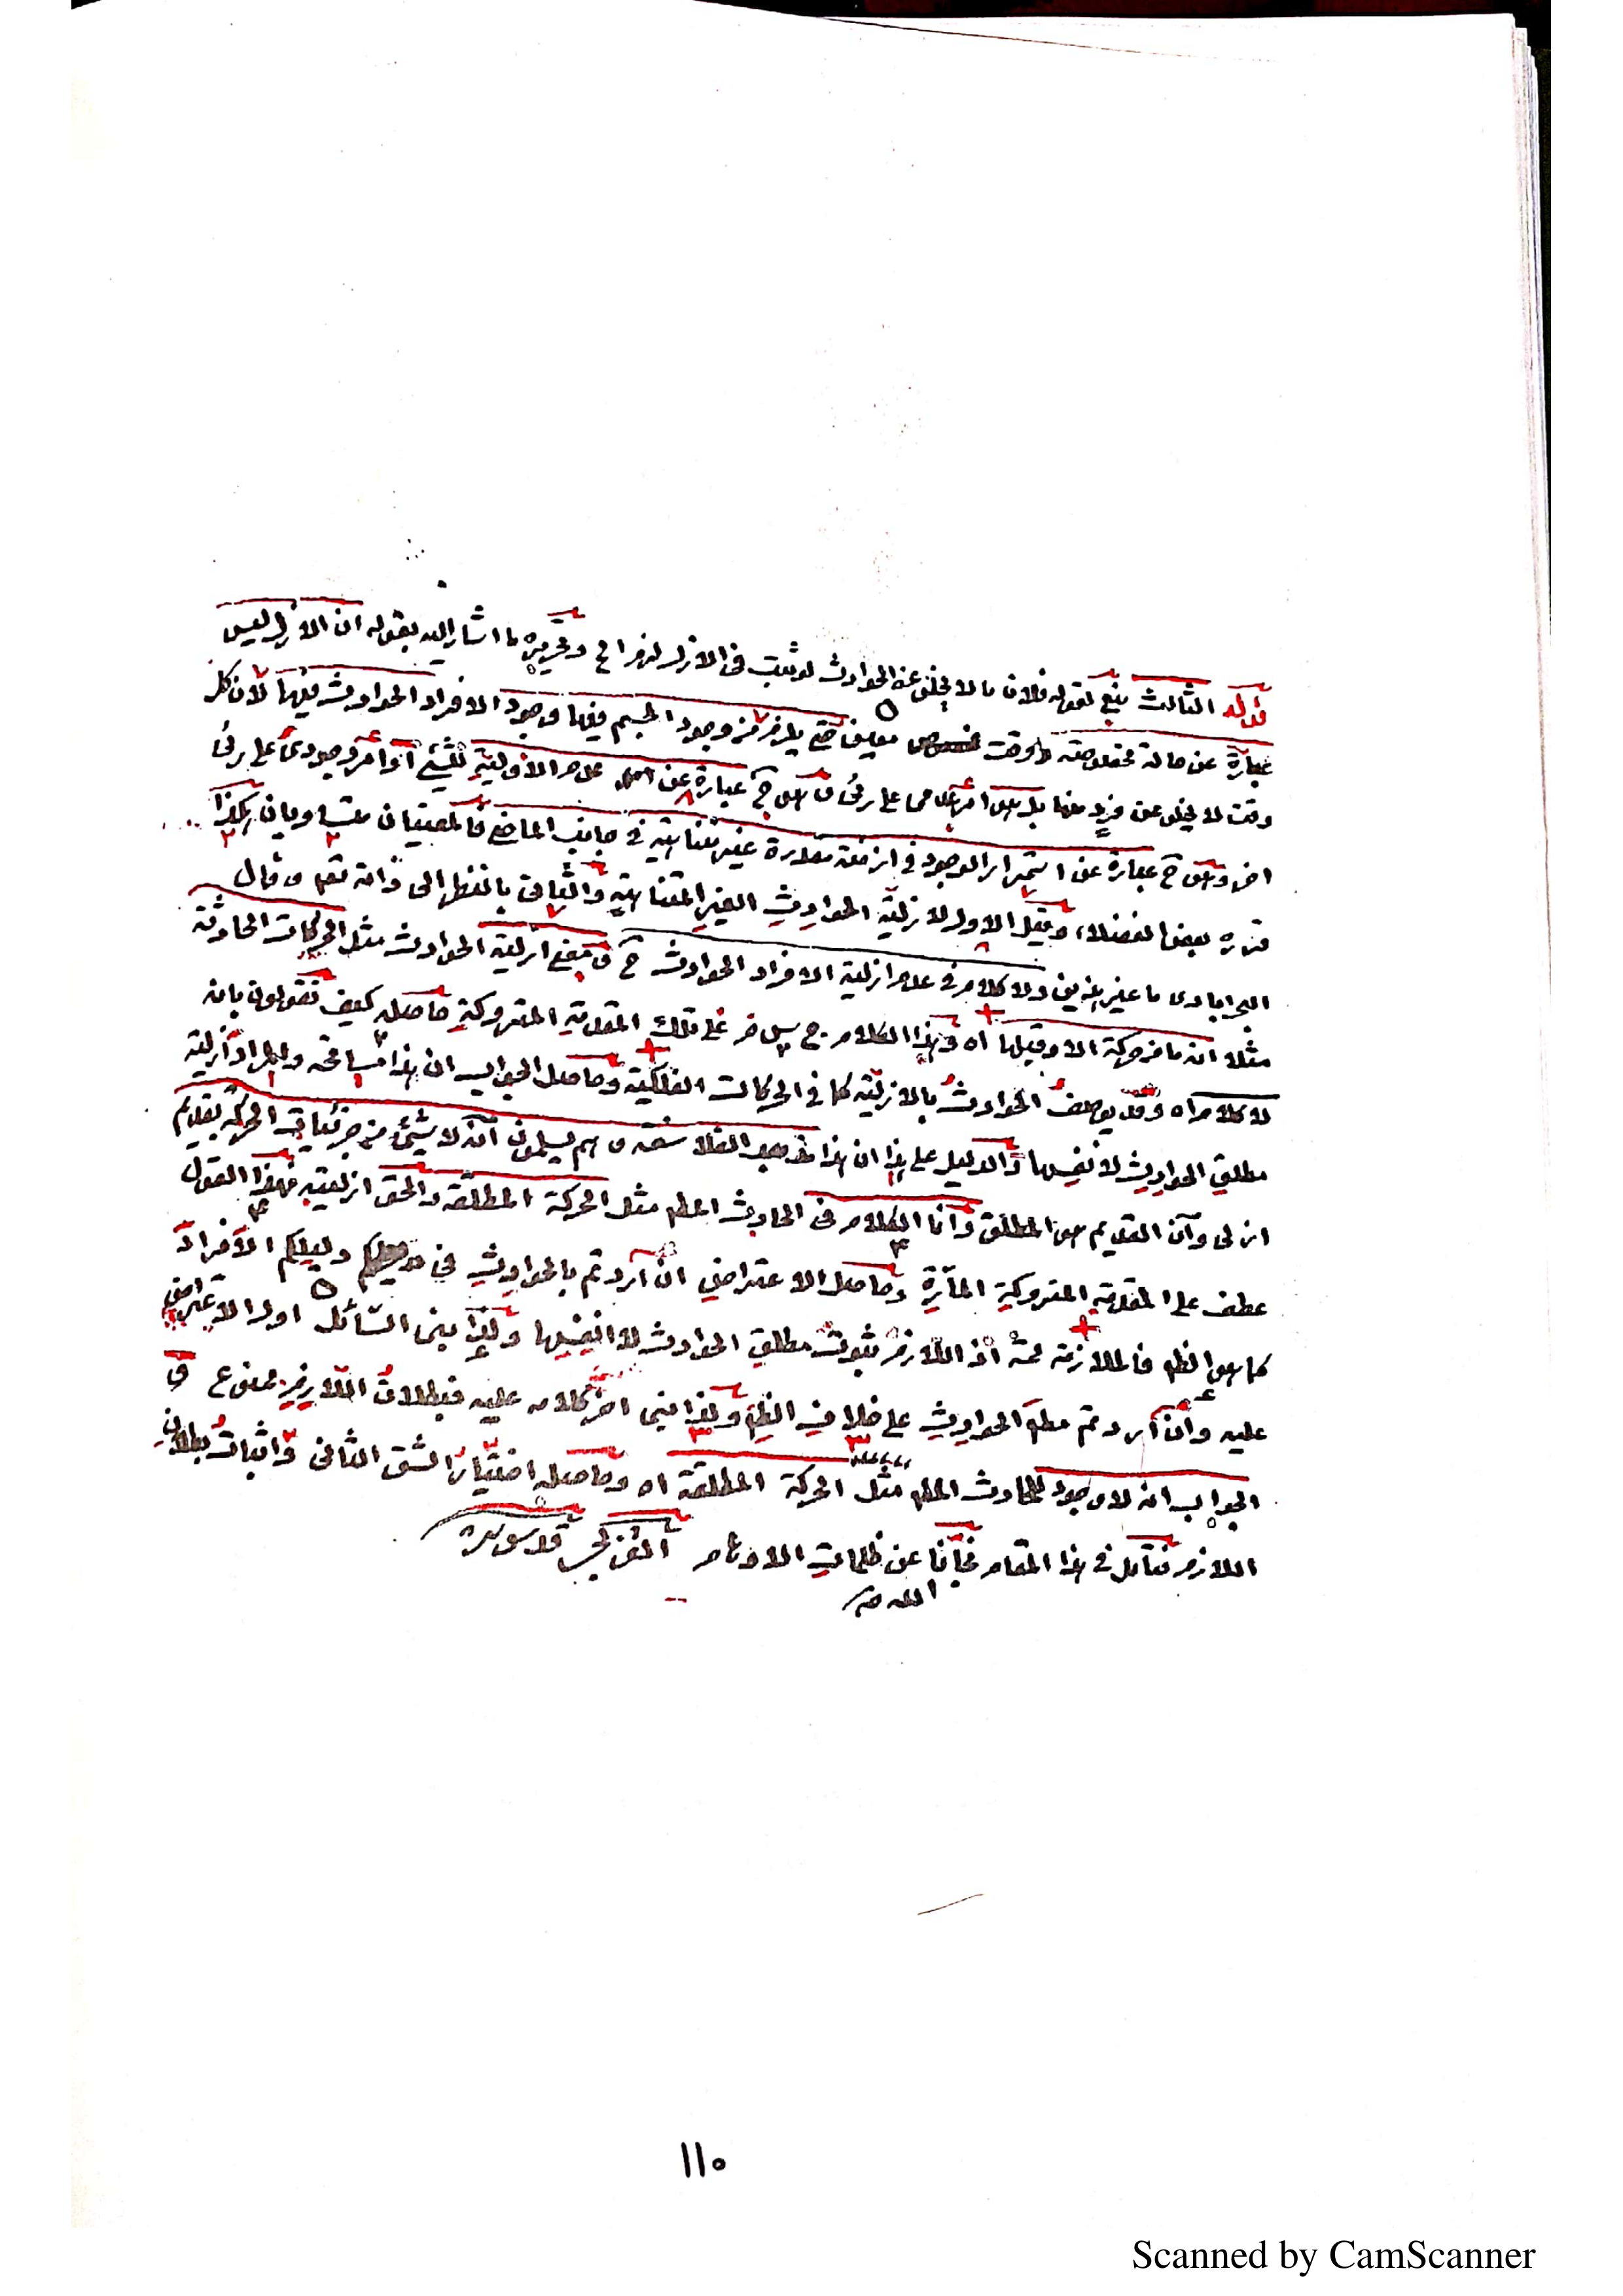 قوله الثالث منع لقوله فلان ما لا يخلو عن الحوادث لو ثبت في الازل لزم اه ح وتحريره ما اشار اليه بقوله ان الازل ليس
عبارة عن حالة مخصوصة او وقت معين ح يلزم من وجود الجسم فيها وجود الافراد الحوادث فيها لان كل
وقت لا يخلو عن فرد منها بل هو امر على رئ وهو ح عبارة عن عدم الاولية للشيء او امر وجودى على رئ
اخر وهو ح عبارة عن استمرار الوجود في ازمنة مقدرة غير متناهية في جانب الماضي فالمعنيان متساويان هكذا
قرره بعض الفضلاء وقيل الاول لازلية الحوادث الغير المتناهية والثاني بالنظر الى ذاته تعه وقال
ما غير ولا كلام في عدم ازلية الافراد الحوادث ح ومنع ازلية الحوادث مثل الحركات الحادثة
مثلا انه ما من حركة الا وقبلها اه وهذا الكلام على تلك المقدمة المتروكة حاصله كيف تقولون بانه
لا كلام اه وقد يوصف الحوادث بالازلية كما في الحركات الفلكية وحاصل الجواب ان هذا مسامحة والمراد ازلية
مطلق الحوادث لا نفيسها والدليل على هذا ان هذا مذهب الفلاسفة وهم يسلمون انه لا شيء من جزئيات الحركة بقديم
ازلى وان القديم هو المطلق وانما الكلام في الحادث المطلق مثل الحركة المطلقة والحق ازليته فهذا القول
عطف على المقدمة المتروكة المارة وحاصل الاعتراض ان اردتم بالحوادث في دليلكم الافراد
كما هو الظ فالملازمة ممنوعة اذ اللازم ثبوت مطلق الحوادث لا انفسها ولذا بنى السائل اول الاعتراض
عليه وان اردتم مطلق الحوادث على خلاف الظ ولذا بنى اخر كلامه عليه فبطلان اللازم ممنوع و
الجواب انه لا وجود للحادث المطلق مثل الحركة المطلقة اه وحاصله اختيار الشق الثاني واثبات بطلان
اللازم فتأمل في هذا المقام نجانا عن ظلمات الاوهام
الله
١١٠
Scanned by CamScanner